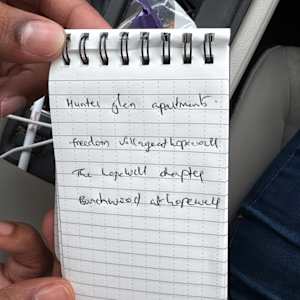 Hunters glen apartments.
freedom village at hopewell
The hopewell chapter
Birchwood at hopewell